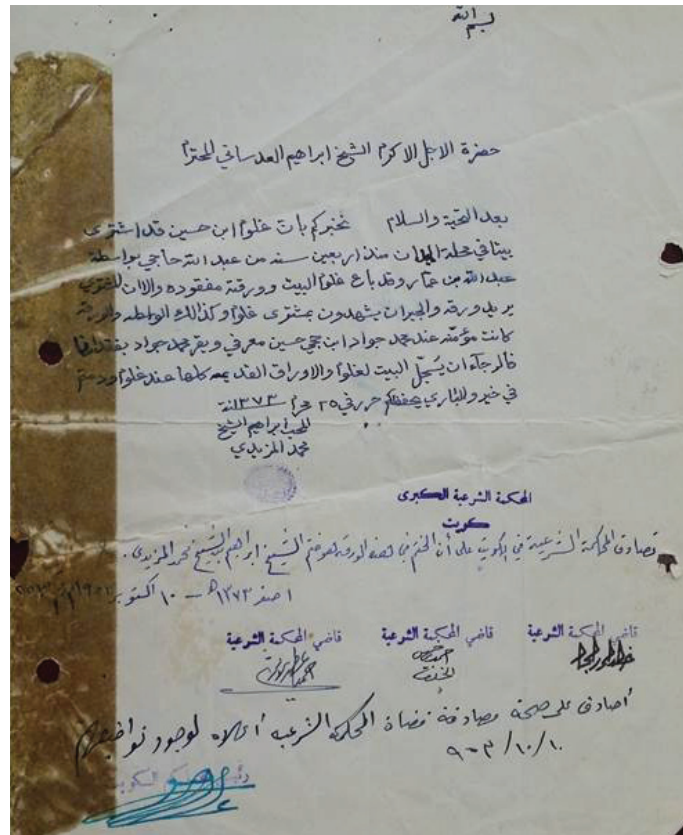 بسم الله
حضرة الاجل الاكرم الشيخ ابراهيم العدساني المحترم
بعد التحية والسلام نخبركم بان غلوم ابن حسين قد اشترى
بيتا في محلة الميدان منذ اربعين سنه من عبد الله حاجي بواسطة
عبد الله بن عمار وقد باع غلوم البيت وورقته مفقوده والان المشتري
يريد ورقه والجيران يشهدون بمشترى غلوم وكذالك الواسطه والورقة
كانت مؤمنه عند محمد جواد ابن حجي حسين معرفي ويقر محمد جواد بفقدانها
فالرجاء ان يسجل البيت لغلوم والاوراق القديمه كلها عند غلوم ودمتم
في خير والباري يحفظكم حرر في ٢٥ محرم ١٣٧٣ سنة
المحب ابراهيم الشيخ
محمد المزيدي
المحكمة الشرعية الكبرى
كويت
تصادق المحكمة الشرعية في الكويت على أن الختم في هذه الورقة هو ختم الشيخ ابراهيم بن الشيخ محمد المزيدي.
١ صفر ١٣٧٣ هـ - ١٠ اكتوبر ١٩٥٣ م
قاضي المحكمة الشرعية
قاضي المحكمة الشرعية
قاضي المحكمة الشرعية
أصادق على صحة مصادقة قضاة المحكمة الشرعيه أعلاه لوجود تواقيعهم
٩٥٣/١٠/١٠
رئيس محاكم الكويت